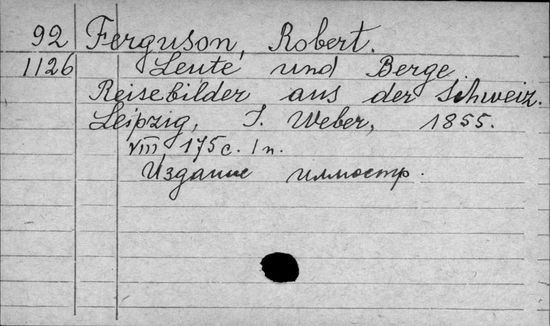 92 Ferguson, Robert.
1126 Leute und Berge.
Reisebilder aus der Schweiz.
Leipzig, J. Weber, 1855.
VIII 175 с. 1 л.
Издание иллюстр.